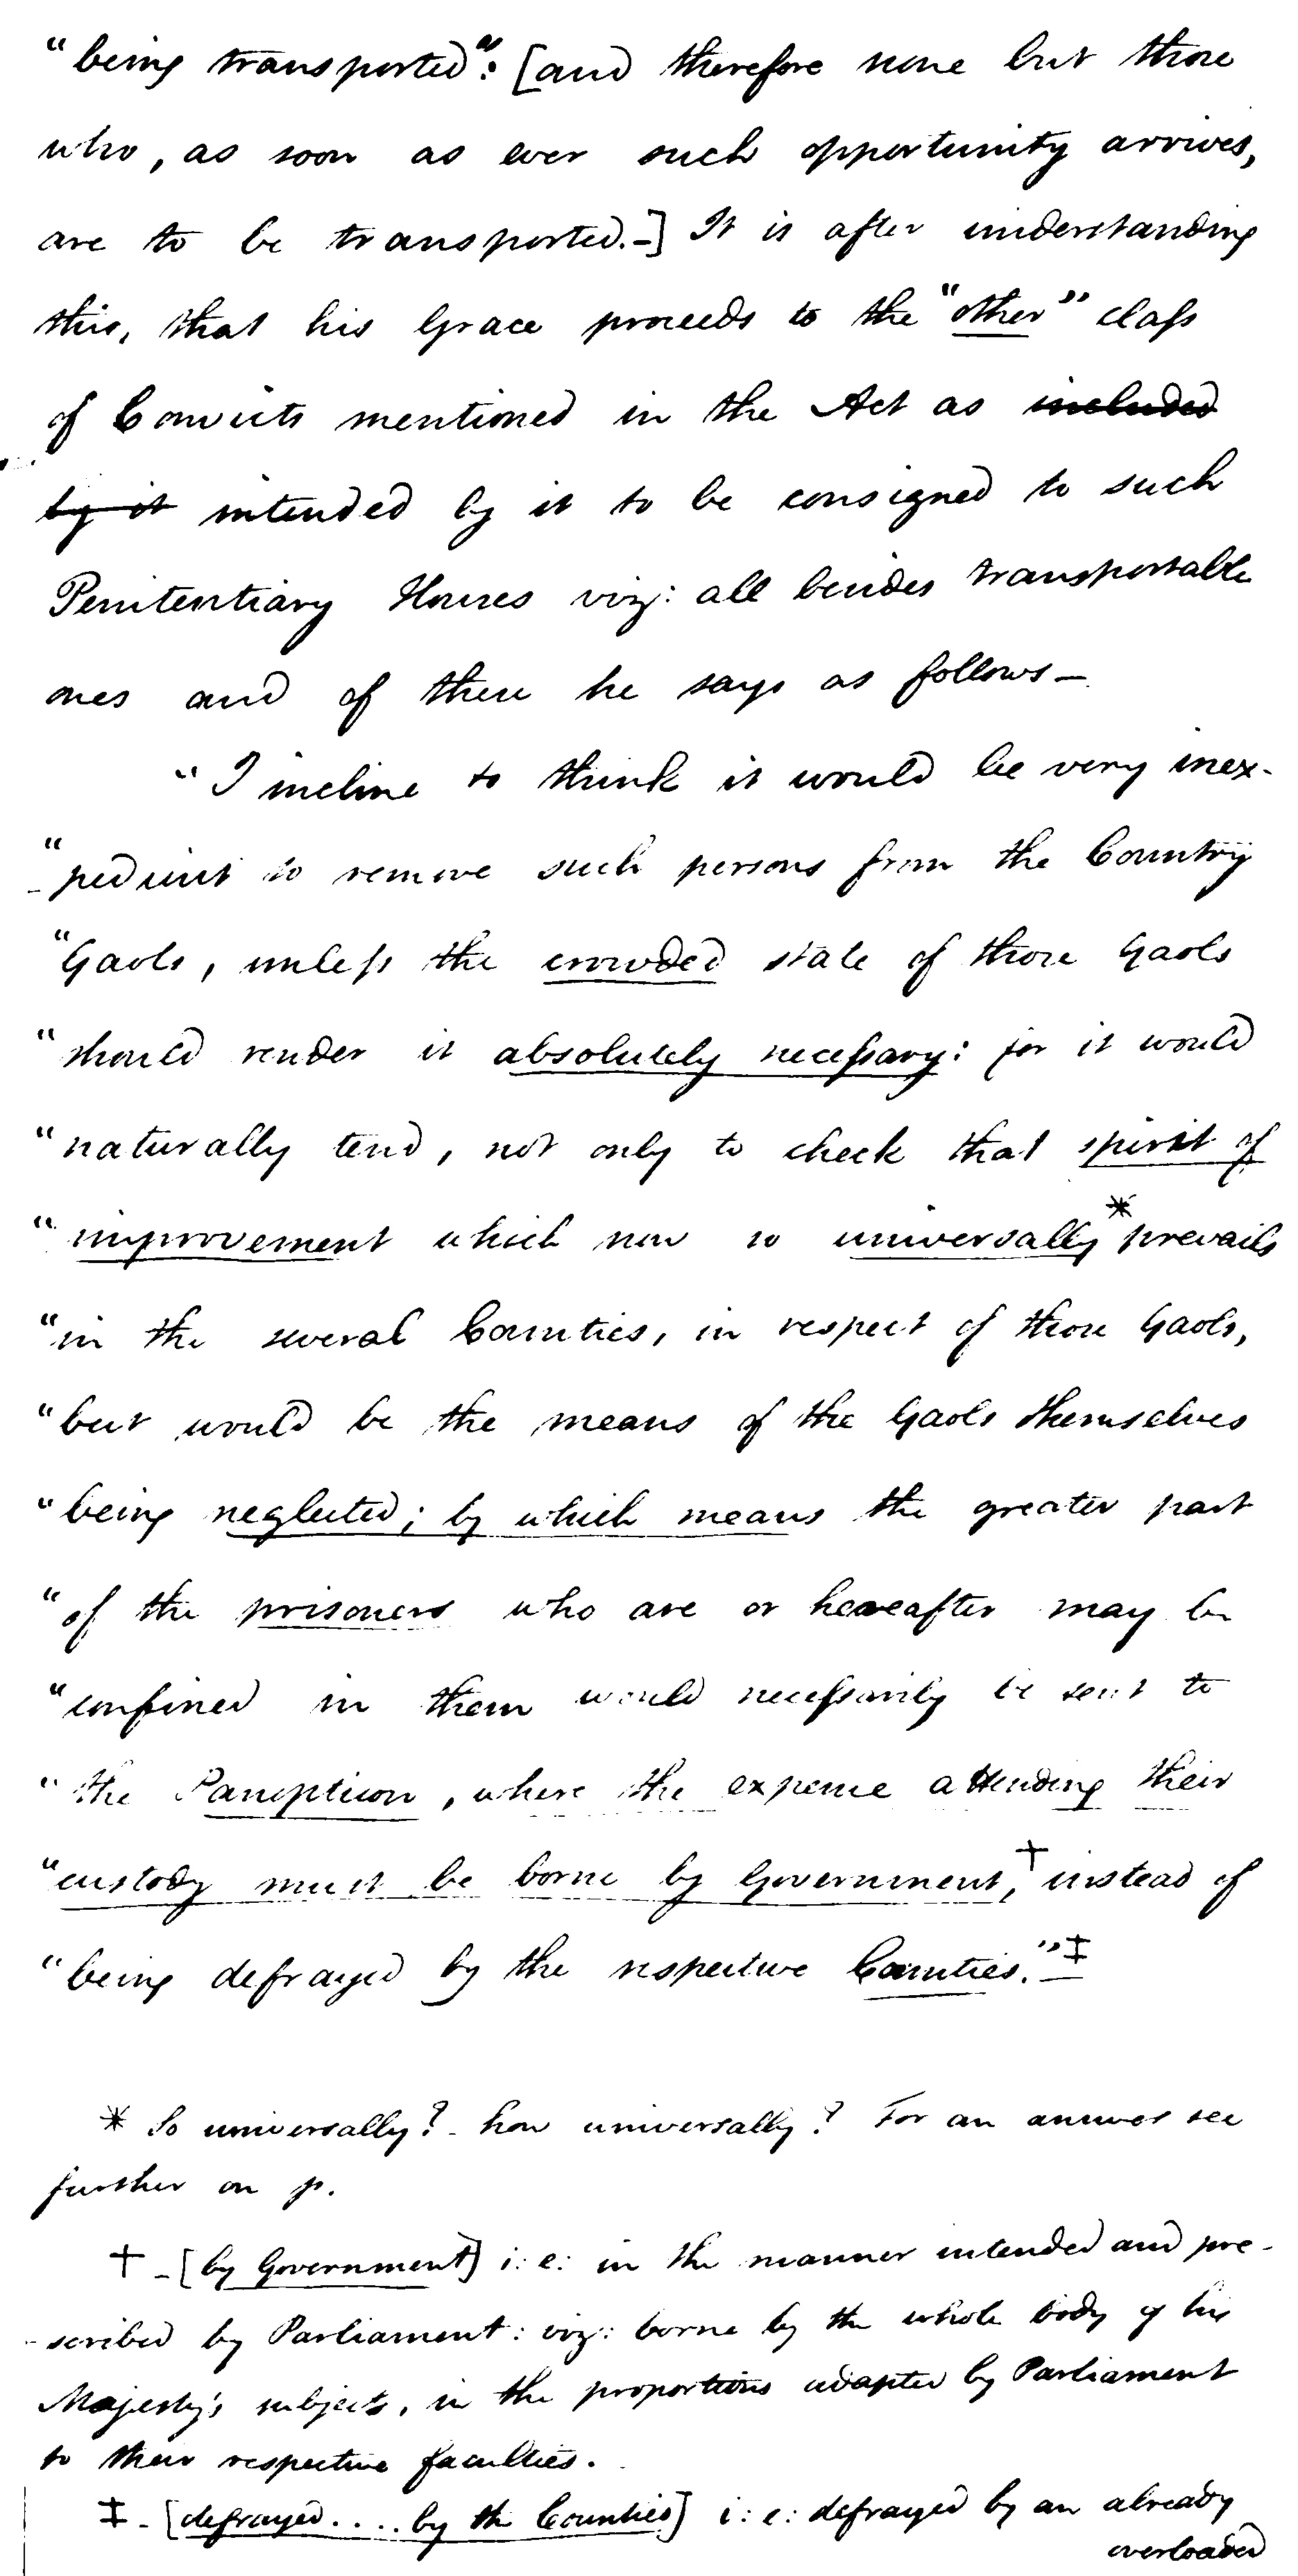 “being transported”: [and therefore none but those
who, as soon as ever such opportunity arrives,
are to be transported.-] It is after understanding
this, that his Grace proceeds to the “other” class
of Convicts mentioned in the Act as included
by it intended by it to be consigned to such
Penitentiary Houses viz: all besides transportable
ones and of these he says as follows—
“I incline to think it would be very inex-
“-pedient to remove such persons from the Country
“Gaols, unless the crowded state of those Gaols
“should render it absolutely necessary: for it would
“naturally tend, not only to check that spirit of
“improvement which now so universally * prevails
“in the several Counties, in respect of those Gaols,
“but would be the means of the Gaols themselves
“being neglected; by which means the greater part
“of the prisoners who are or hereafter may be
“confined in them would necessarily be sent to
“the Panopticon, where the expense attending their
“custody must be borne by Government,† instead of
“being defrayed by the respective Counties.”‡
* So universally? - how universally? For an answer see
further on p.
† - [by Government] i: e: in the manner intended and pre-
-scribed by Parliament: viz: borne by the whole body of his
Majesty's subjects, in the proportions adapted by Parliament
to their respective faculties.
‡ - [defrayed.... by the Counties] i: e: defrayed by an already
overloaded